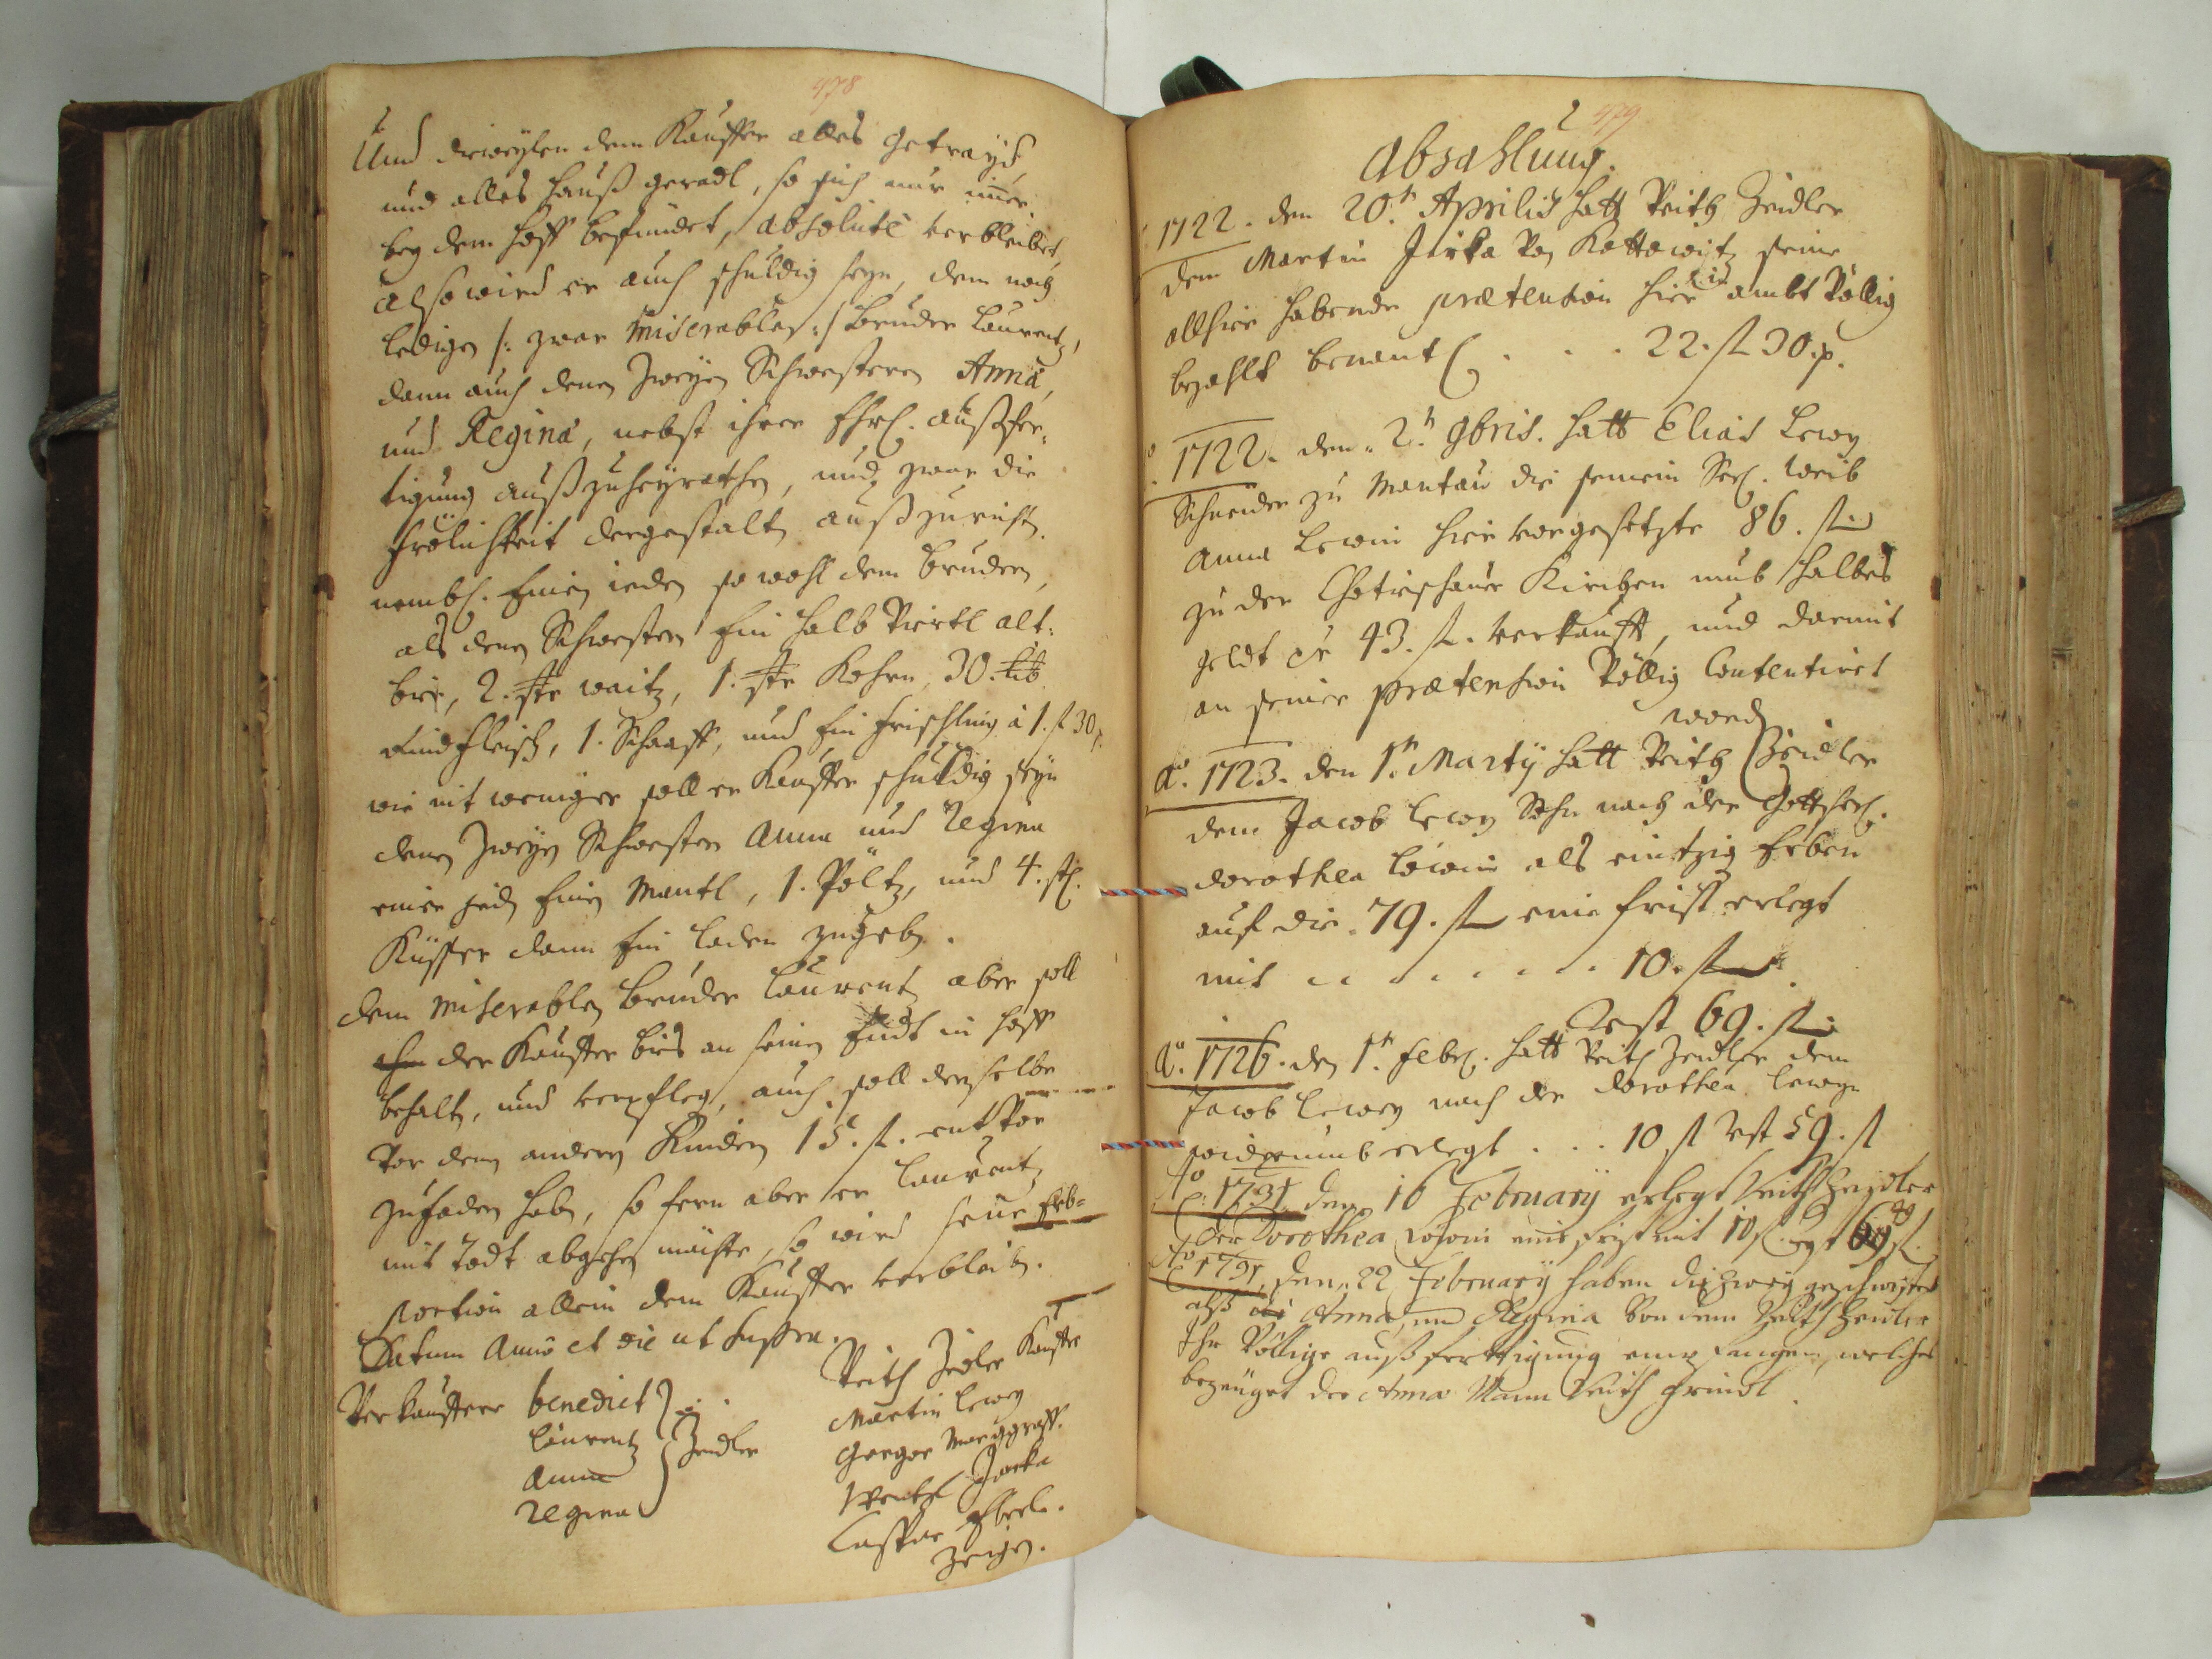 478
Und dieweylen dem Kauffer alles getrayd,
und alles Hauß geradt, so sich nur imer
bey dem Hoff befündet, absolute verbleibet,
Also wird er auch schuldig seyn, dem noch
ledigen /: zwar miserablen :/ Bruder Laurentz,
dann auch denen zweyen Schwestern Anna,
und Regina, nebst ihrer Ehrl. außfer-
tigung außzuheyrathen, und zwar die
Frölichkeit dergestalt außzurichten
nembl. Einen ieden so wohl dem Brudern,
als denen Schwestern Ein halb Viertl alt-
bier, 2. str waitz, 1. str Kohrn, 30. lb
Rindfleisch, 1. Schaaff, und Ein frischling à 1. f 30
wie nit weniger soll er Kauffer schuldig seyn
denen zweyen Schwestern Anna und Regina
einer jeden Einen Mantl, 1. Pöltz, und 4. stl.
Küsser dann Ein laden zugeben.
dem miserablen Bruder Laurentz aber soll
der Kauffer bies an seinen Endt in Hoff
behalten, und verpflegen, auch soll derselbe
vor denen andern Kindern 15. f.
zufodern haben, so fern aber er Laurentz
mit Todt abgehen möchte, so wird seine Erb-
portion allein dem Kauffer verbleiben.
Datum Anno et die ut supra.
Verkauffere benedict
Laurentz
Anna
Regina
Zeidler
Veith Zeidler Kauffer
Martin Lewey
Gregor Marggraff.
Wentzl Jirka
Caspar
Zeugen.
479
Abzahlung.
1722. den 20.ten Aprilis hatt Veith Zeidler
dem Martin Jirka von Kottowitz seine
allhier habende prætension hier ambt völlig
bezahlt benantl. . . . 22. f 30. p.
1722. den 2.ten 9bris. hatt Elias Lewy
Schneider zu Mantau die seinem Seel. Weib
Anna Lewin hier vorgesetzte 86. f
zu der Chotieschauer Kirchen umb halbes
geldt pr 43. f. verkaufft, und darmit
an seiner prætension völlig Contentiret
worden
Ao. 1723. den 1.ten Marty hatt Veith Zeidler
dem Jacob Lewey Sohn nach der Gottseel.
Dorothea Lewin als eintzig Erben
auf die 79. f eine frist erlegt
mit . . . . . . . 10. f
Rest 69. f
Ao. 1726. den 1.ten Febr. hatt Veith Zeidler dem
Jacob Lewey nach der Dorothea Lewyn
widerumb erlegt . . . 10 f Rest 59. f
Ao 1731. den 16 February erlegt Veith Zeydler
der Dorothea Lewin eine frist mit 10 f. rest 49 f.
Ao 1731. den 22 February haben die zwey geschwister
alß Anna, und Regina von dem Veith Zeidler
Ihr völlige außfertigung empfangen, welches
bezeüget der Anna Mann Veith Heindl.